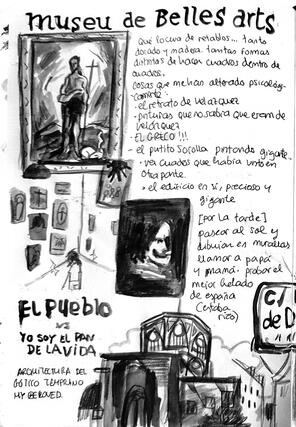 museu de Belles arts
Qué locura de retablos... tanto
dorado y madera. tantas formas
distintas de hacer cuadros dentro de
cuadros.
cosas que me han alterado psicológi-
camente:
• el retrato de Velázquez
• pinturas que no sabía que eran de
velázquez
- EL GRECO!!!
- el putito Sorolla pintando gigante
• ver cuadros que había visto en
otra parte.
• el edificio en sí, precioso y
gigante
[Por la tarde]
pasear al sol y
dibujar en murallas
llamar a papá
y mamá. probar el
mejor helado de
españa
(estaba
rico)
EL PUEBLO
vs
YO SOY EL PAN
DE LA VIDA
ARQUITECTURA DEL
GÓTICO TEMPRANO
MY BELOVED.
C/
de D